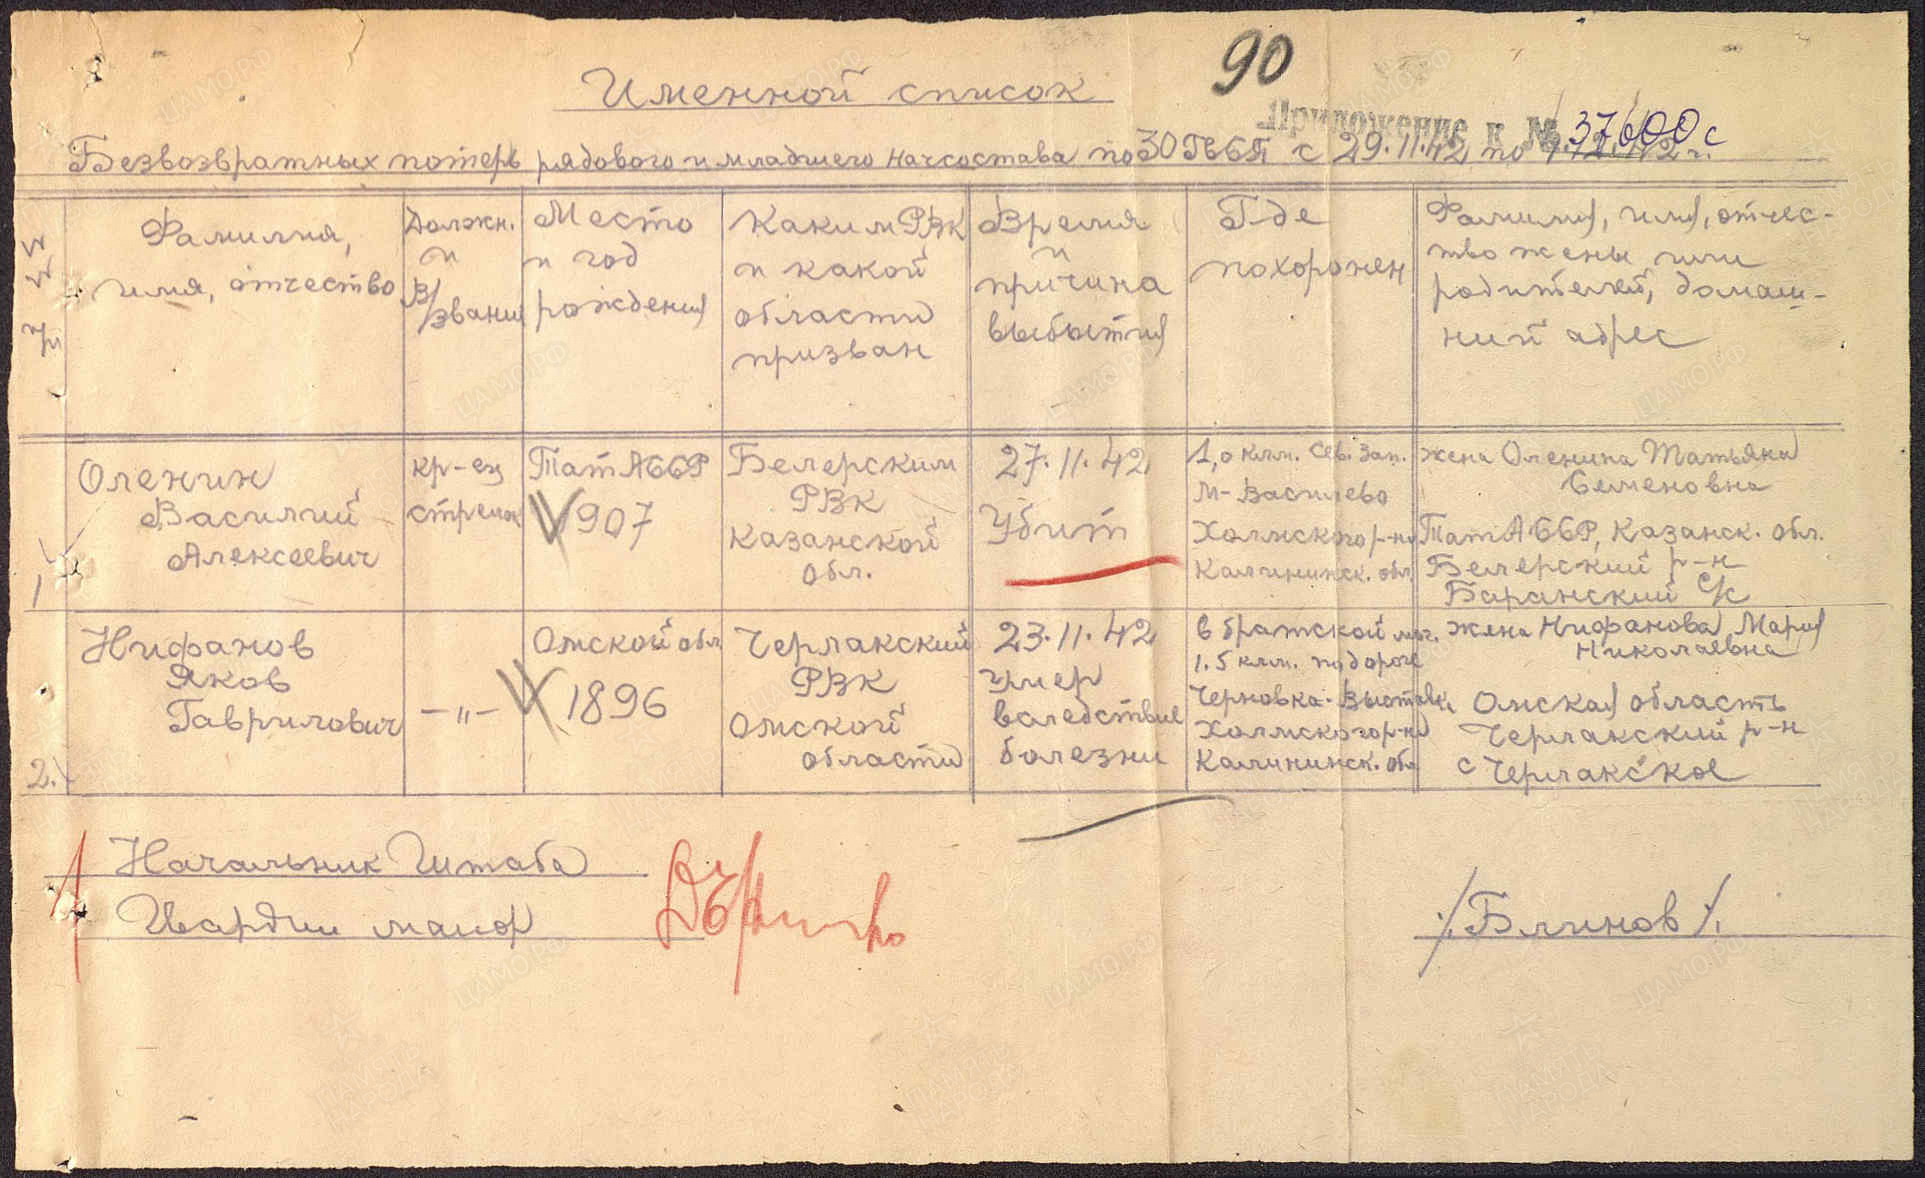 90
Именной список
Приложение к № 37600с
Безвозвратных потерь рядового и младшего начсостава по 30 ГвСП с 29.11.42 по
№№ пп
Фамилия,
имя, отчество
Должн.
и
В/звание
Место
и год
рождения
Каким РВК
и какой
области
призван
Время
и
причина
выбытия
Где
похоронен
Фамилия, имя, отчес-
тво жены или
родителей, домаш-
ний адрес
1
Оленин
Василий
Алексеевич
кр-ец
стрелок
ТатАССР
1907
Белерским
РВК
Казанской
обл.
27.11.42
Убит
1,0 клм. Сев. Зап.
М-Василево
Холмского р-на
Калининск. обл.
жена Оленина Татьяна
Семеновна
ТатАССР, Казанск. обл.
Белерский р-н
Баранский с/с
2.
Нифанов
Яков
Гаврилович
-"-
Омской обл
1896
Черлакский
РВК
Омской
области
23.11.42
умер
вследствие
болезни
в братской мог.
1.5 клм. по дороге
Черновка-Выставк.
Холмского р-на
Калининск. обл
жена Нифанова Мария
Николаевна
Омская область
Черлакский р-н
с Черлакское
Начальник Штаба
Гвардии майор
/Блинов/.
ЦАМО.РФ
ПАМЯТЬ НАРОДА